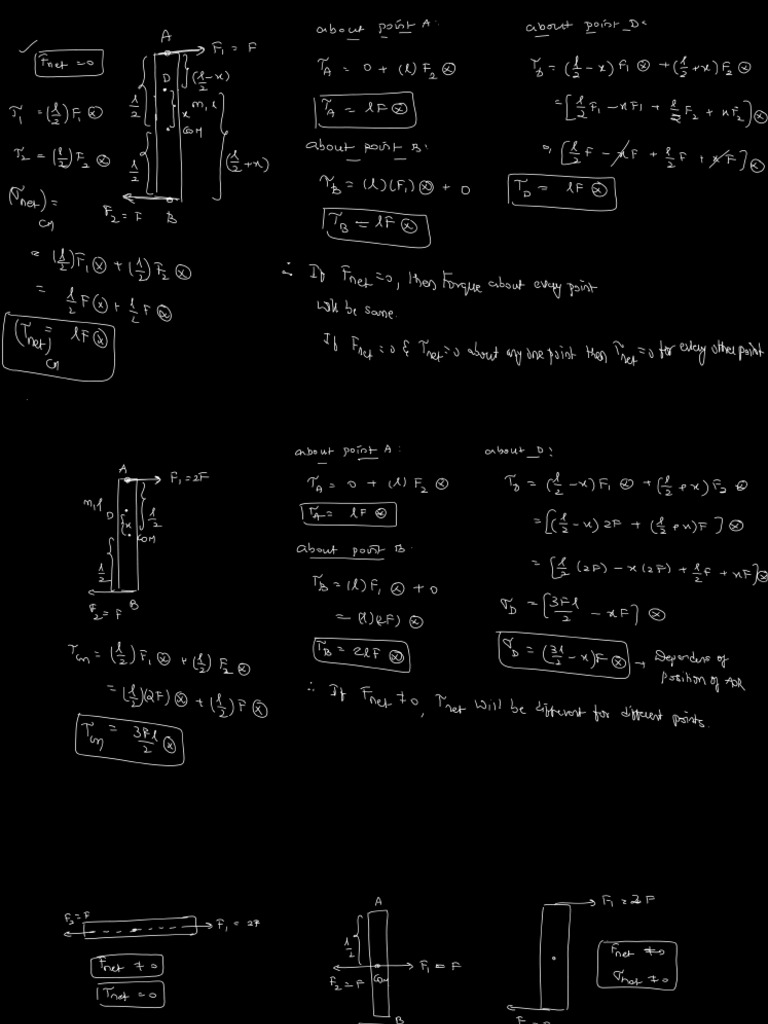 ✓ F_net = 0
A
F₁ = F
D
(l/2 - x)
l/2
x
m, l
COM
l/2
(l/2 + x)
F₂ = F
B
τ₁ = (l/2) F₁ ⊗
τ₂ = (l/2) F₂ ⊗
(τ_net)_cm =
= (l/2) F₁ ⊗ + (l/2) F₂ ⊗
= l/2 F ⊗ + l/2 F ⊗
(τ_net)_cm = lF ⊗
about point A:
τ_A = 0 + (l) F₂ ⊗
τ_A = lF ⊗
about point B:
τ_B = (l)(F₁) ⊗ + 0
τ_B = lF ⊗
about point D:
τ_D = (l/2 - x) F₁ ⊗ + (l/2 + x) F₂ ⊗
= [l/2 F₁ - xF₁ + l/2 F₂ + xF₂] ⊗
= [l/2 F - xF + l/2 F + xF] ⊗
τ_D = lF ⊗
∴ If F_net = 0, then Torque about every point
will be same.
If F_net = 0 & τ_net = 0 about any one point then τ_net = 0 for every other point
A
F₁ = 2F
m, l
D
x
l/2
COM
l/2
B
F₂ = F
τ_cm = (l/2) F₁ ⊗ + (l/2) F₂ ⊗
= (l/2)(2F) ⊗ + (l/2) F ⊗
τ_cm = 3Fl/2 ⊗
about point A:
τ_A = 0 + (l) F₂ ⊗
τ_A = lF ⊗
about point B:
τ_B = (l) F₁ ⊗ + 0
= (l)(2F) ⊗
τ_B = 2lF ⊗
about D:
τ_D = (l/2 - x) F₁ ⊗ + (l/2 + x) F₂ ⊗
= [(l/2 - x) 2F + (l/2 + x) F] ⊗
= [l/2 (2F) - x(2F) + l/2 F + xF] ⊗
τ_D = [3Fl/2 - xF] ⊗
τ_D = (3l/2 - x) F ⊗ → Depends of
position of AOR
∴ If F_net ≠ 0, τ_net will be different for different points.
F₂ = F
F₁ = 2F
F_net ≠ 0
τ_net = 0
A
l/2
F₂ = F
COM
F₁ = F
B
F₁ = 2F
F_net ≠ 0
τ_net ≠ 0